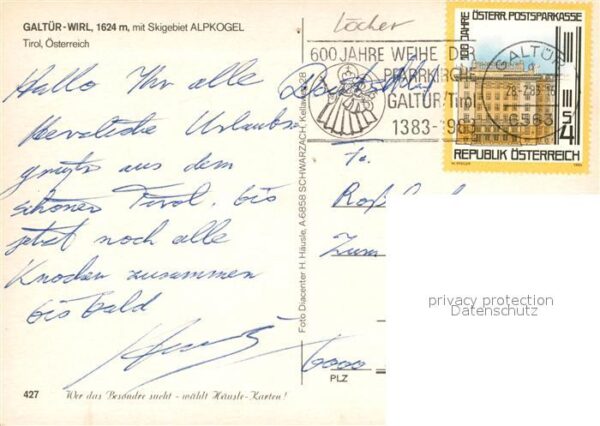 GALTÜR-WIRL, 1624 m, mit Skigebiet ALPKOGEL
Tirol, Österreich
Löcher
Hallo Ihr alle
Herzliche Urlaubs
grüße aus dem
schönen Tirol, bis
jetzt noch alle
Knochen zusammen
bis bald
427
Wer das Besondre sucht - wählt Häusle-Karten!
Foto Diacenter H. Häusle, A-6858 SCHWARZACH, Kellaweg 28
600 JAHRE WEIHE DER
PFARRKIRCHE
GALTÜR/Tirol
1383-1983
GALTÜR
6563
100 JAHRE ÖSTERR. POSTSPARKASSE
S 4
REPUBLIK ÖSTERREICH
Fa.
Zum
6000
PLZ
privacy protection
Datenschutz